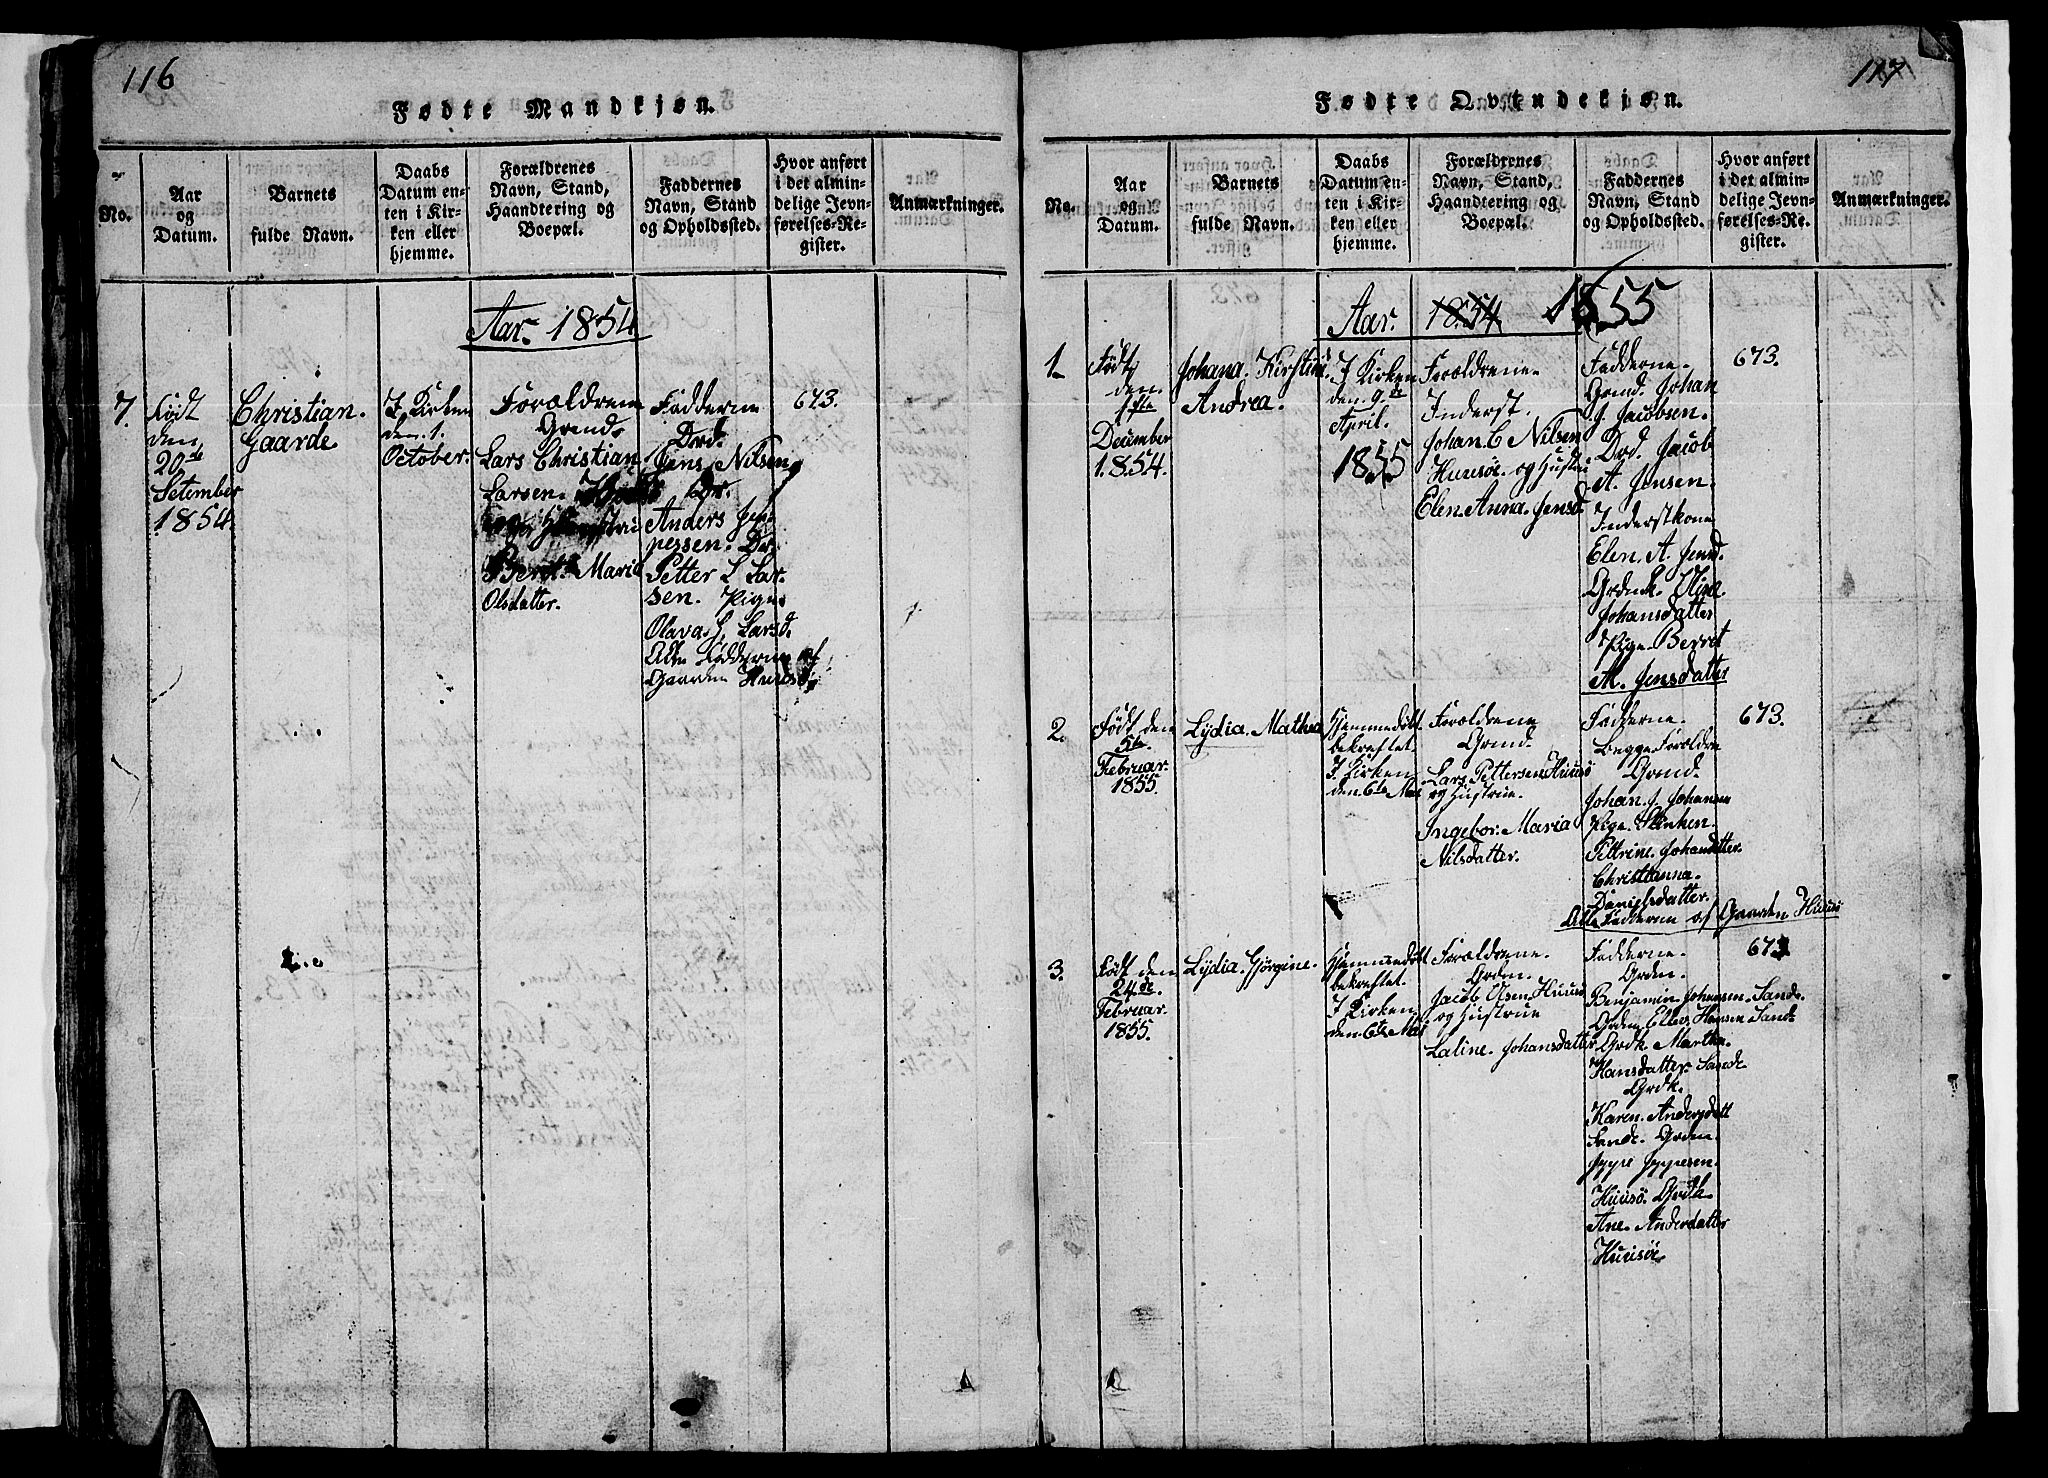 116
Fødte Mandkjøn.
No.
Aar
og
Datum.
Barnets
fulde Navn.
Daabs
Datum en-
ten i Kir-
ken eller
hjemme.
Forældrenes
Navn, Stand,
Haandtering og
Boepæl.
Faddernes
Navn, Stand
og Opholdssted.
Hvor anført
i det almin-
delige Jevn-
førelses-Re-
gister.
Anmærkninger.
Aar. 1854
7.
Født
den
20de
Setember
1854.
Christian.
Gaarde.
I Kirken
den 1.
October.
Forældrene
Grend.
Lars Christian
Larsen.
og Hustru
Beret. Maria
Olsdatter.
Fadderne
Drd.
Jens Nilsen
Dr.
Anders Jep-
pessen. Dr.
Petter L Lar-
sen. Pige.
Olava L. Larsd.
Alle Fadderne af
Gaarden Huusø.
673.
117
Fødte Qvindekjøn.
No.
Aar
og
Datum.
Barnets
fulde Navn.
Daabs
Datum en-
ten i Kir-
ken eller
hjemme.
Forældrenes
Navn, Stand,
Haandtering og
Boepal.
Faddernes
Navn, Stand
og Opholdssted.
Hvor anført
i det almin-
delige Jevn-
førelses-Re-
gister.
Anmærkninger.
Aar. 1854 1855
1.
Født
den
1ste
December
1854.
Johana. Kirstine.
Andrea.
I Kirken
den 9de
April.
1855
Forældrene.
Inderst.
Johan. C Nilsen
Huusø. og Hustru
Elen. Anna. Jensd.
Fadderne.
Grmd. Johan
J. Jacobsen.
Drd. Jacob
A. Jensen.
Inderstkone
Elen. A. Jensd.
Grdmk.
Johansdatter
Pige. Berret
M. Jensdatter
673.
2.
Født den
5te
Februar.
1855.
Lydia. Mathea
Hjemmedøbt
bekræftet.
I. Kirken
den 6te Mai
Forældrene
Grmd.
Lars Pettersen Huusø
og Hustrue.
Ingebor. Maria
Nilsdatter.
Fadderne.
Begge Forældre
Grmd.
Johan. J. Johansen
Pige.
Pettrine. Johansdatter.
Christianna.
Danielsdatter.
Alle Fadderne af Gaarden Huusø
673.
3.
Født den
24de
Februar.
1855.
Lydia. Gjørgine.
Hjemmedøbt
bekræftet.
I Kirken
den 6te Mai
Forældrene.
Grdm.
Jacob Olsen. Huusø
og Hustrue
Laline. Johansdatter
Fadderne.
Grdm.
Benjamin Johansen. Sande.
Grdm Ellev. Hansen Sand.
Grdk. Martha.
Hansdatter Sande
Grdk.
Karen. Andersdatt
Sande. Grdm.
Jeppe Jeppesen.
Huusø. Grdk.
Ane. Andersdatter
Huusø.
673